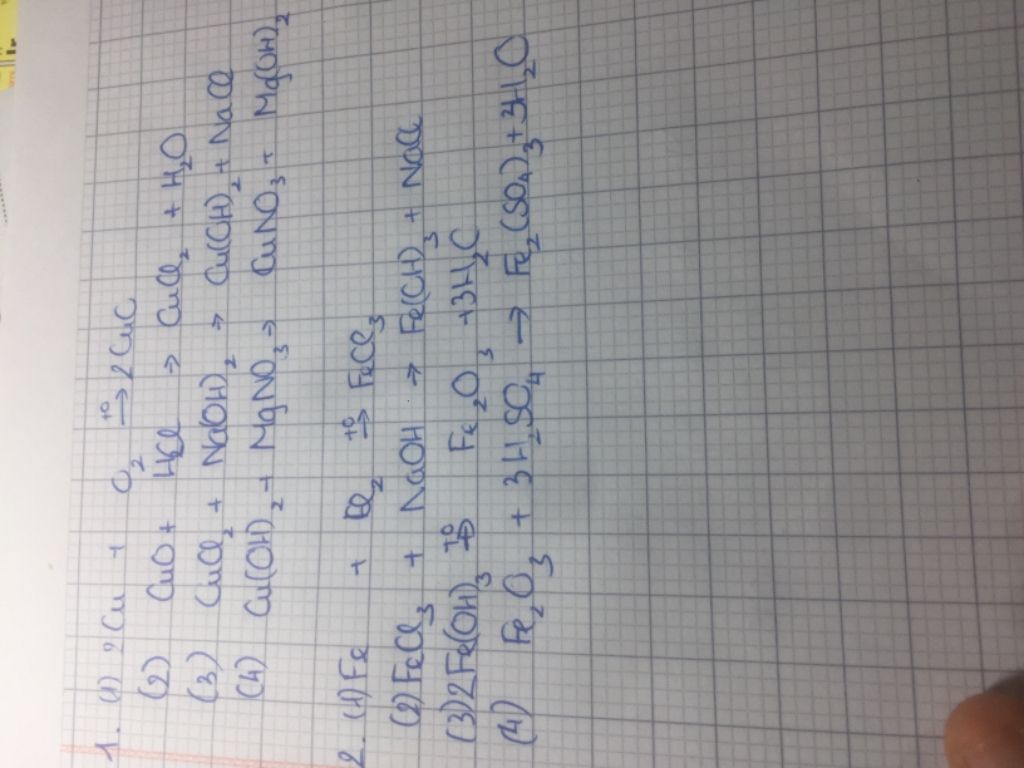 1. (1) 2Cu + O2 -t°-> 2CuO
(2) CuO + HCl -> CuCl2 + H2O
(3) CuCl2 + NaOH)2 -> Cu(OH)2 + NaCl
(4) Cu(OH)2 + MgNO3 -> CuNO3 + Mg(OH)2
2. (1) Fe + Cl2 -t°-> FeCl3
(2) FeCl3 + NaOH -> Fe(OH)3 + NaCl
(3) 2Fe(OH)3 -t°-> Fe2O3 + 3H2O
(4) Fe2O3 + 3H2SO4 -> Fe2(SO4)3 + 3H2O